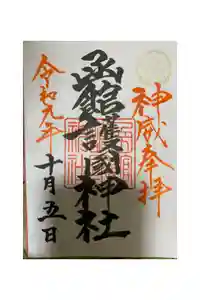 神威奉拝
函館護國神社
令和元年
十月五日